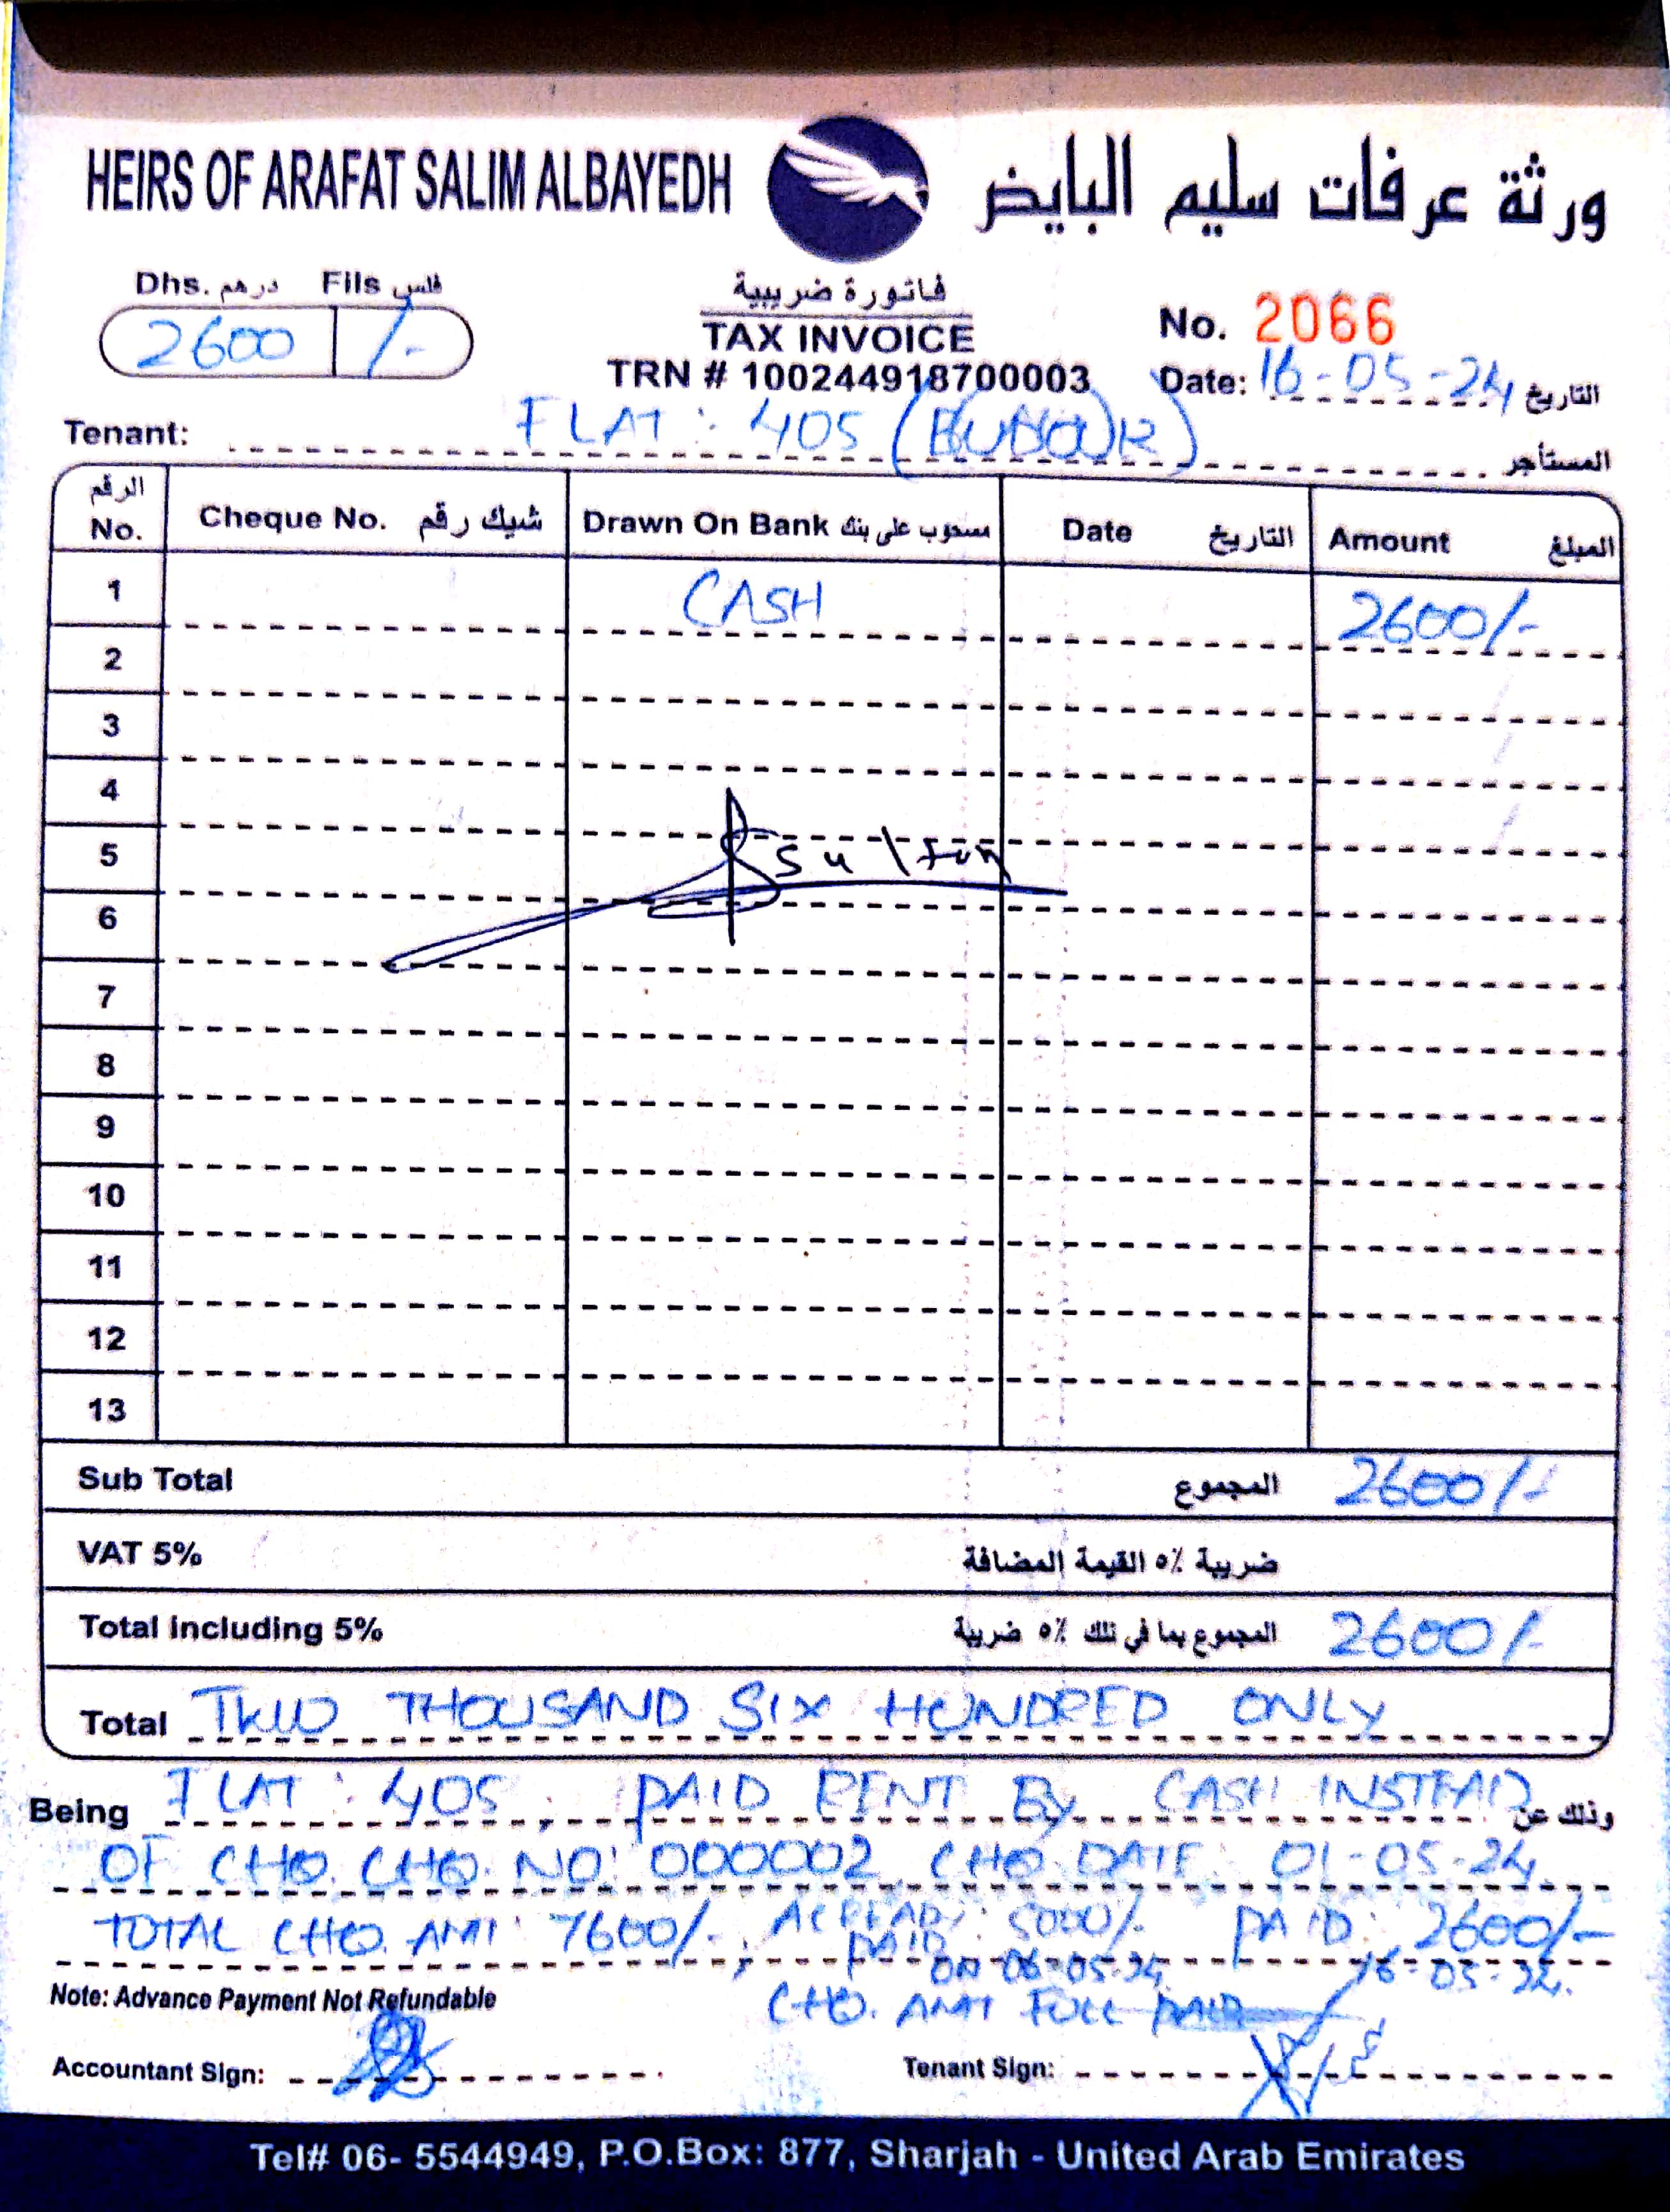 HEIRS OF ARAFAT SALIM ALBAYEDH ورثة عرفات سليم البايض
Dhs. درهم Fils فلس
2600 /-
فاتورة ضريبية
TAX INVOICE
TRN # 100244918700003
No. 2066
Date: 16-05-24 التاريخ
Tenant: FLAT : 405 ( ) المستأجر
الرقم No. Cheque No. شيك رقم Drawn On Bank مسحوب على بنك Date التاريخ Amount المبلغ
1 CASH 2600/-
2
3
4
5
6
7
8
9
10
11
12
13
Sub Total المجموع 2600/-
VAT 5% ضريبة ٥٪ القيمة المضافة
Total including 5% المجموع بما في ذلك ٥٪ ضريبة 2600/-
Total THOUSAND SIX HUNDRED ONLY
Being FLAT : 405, PAID RENT By CASH INSTEAD وذلك عن
OF CHQ. CHQ. NO: 000002 CHQ. DATE: 01-05-24
TOTAL CHQ. AMT: 7600/-, 5000/- PAID: 2600/-
PAID ON 06-05-24 16-05-24.
Note: Advance Payment Not Refundable
CHQ. AMT FULL PAID
Accountant Sign:
Tenant Sign:
Tel# 06- 5544949, P.O.Box: 877, Sharjah - United Arab Emirates